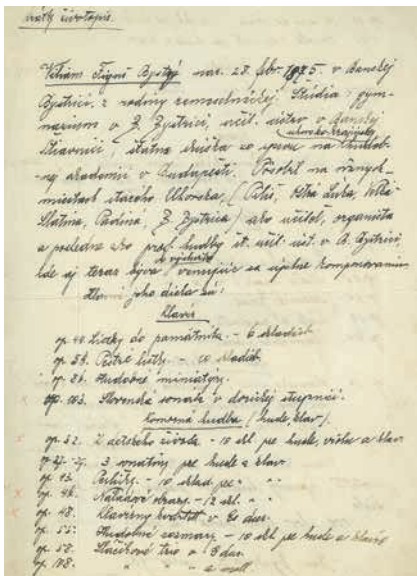 Krátky životopis.
Viliam Figuš Bystrý nar. 28. febr. 1875. v Banskej
Bystrici, z rodiny remeselníckej. Študia: gym-
nazium v B. Bystrici, učit. ústav v Banskej
Štiavnici, štátna skúška zo spevu na
akademii v Budapešti. Pôsobil na
miestach starého Uhorska, (Piliš, Ostrá Luka,
Slatina, Padina, B. Bystrica) ako učitel, organista
a posledne ako prof. hudby št. učit. úst. v B. Bystrici,
kde aj teraz býva venujúc sa úplne komponovaniu
Hlavné jeho diela sú:
Klavír
op. Lístky do pamätníka. - 6 skladieb
op. Pestré lístky. - 10 skladieb
op. Hudobné miniatúry.
op. 103. Slovenská sonata v dorickej stupnici.
Komorná hudba (husle, klav.)
op. 32. Z detského života - 10 skl. pre husle, violu a klav.
op. 3 sonatíny pre husle a klav.
op. 10 sklad. pre " "
op. Náladové obrazy. - 12 skl. " "
op. 48. Klavírny kvartet v Es dur.
op. 55. Hudobné rozmary - 10 skl. pre husle a klavír
op. 58. Sláčikové trio v dur.
op. 108. " " a moll.